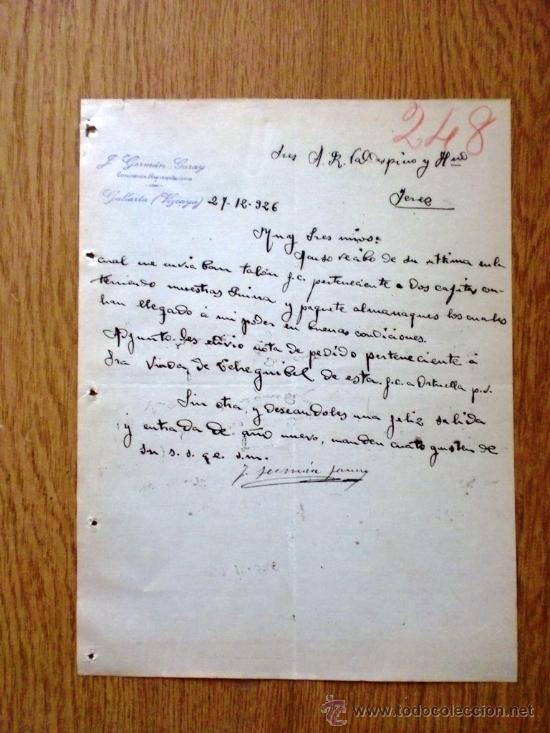 248
J. Germán Garay
Gallarta (Vizcaya)
Sres A. R. Valdespino y Hno
Jerez
27-12-926
Muy Sres mios:
Acuso recibo de su ultima en la
cual me envia ban talón f.c. perteneciente a Dos cajitas con-
teniendo muestras Quina y paquete almanaques los cuales
han llegado á mi poder en buenas condiciones.
Adjunto les envio nota de pedido perteneciente á
Sra Viuda de de esta f.c. a Ortuella p.v.
Sin otra, y deseandoles una feliz salida
y entrada de año nuevo, manden cuanto gusten de
su s. s. q. e. s. m.
J. Germán Garay
todocoleccion
© www.todocoleccion.net